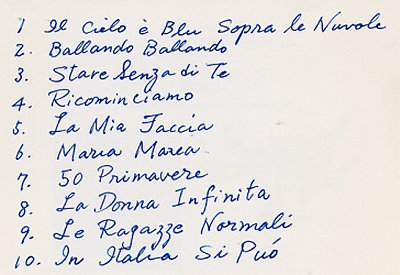 1 Il Cielo è Blu Sopra le Nuvole
2. Ballando Ballando
3. Stare Senza di Te
4. Ricominciamo
5. La Mia Faccia
6. Maria Marea
7. 50 Primavere
8. La Donna Infinita
9. Le Ragazze Normali
10. In Italia Si Puó